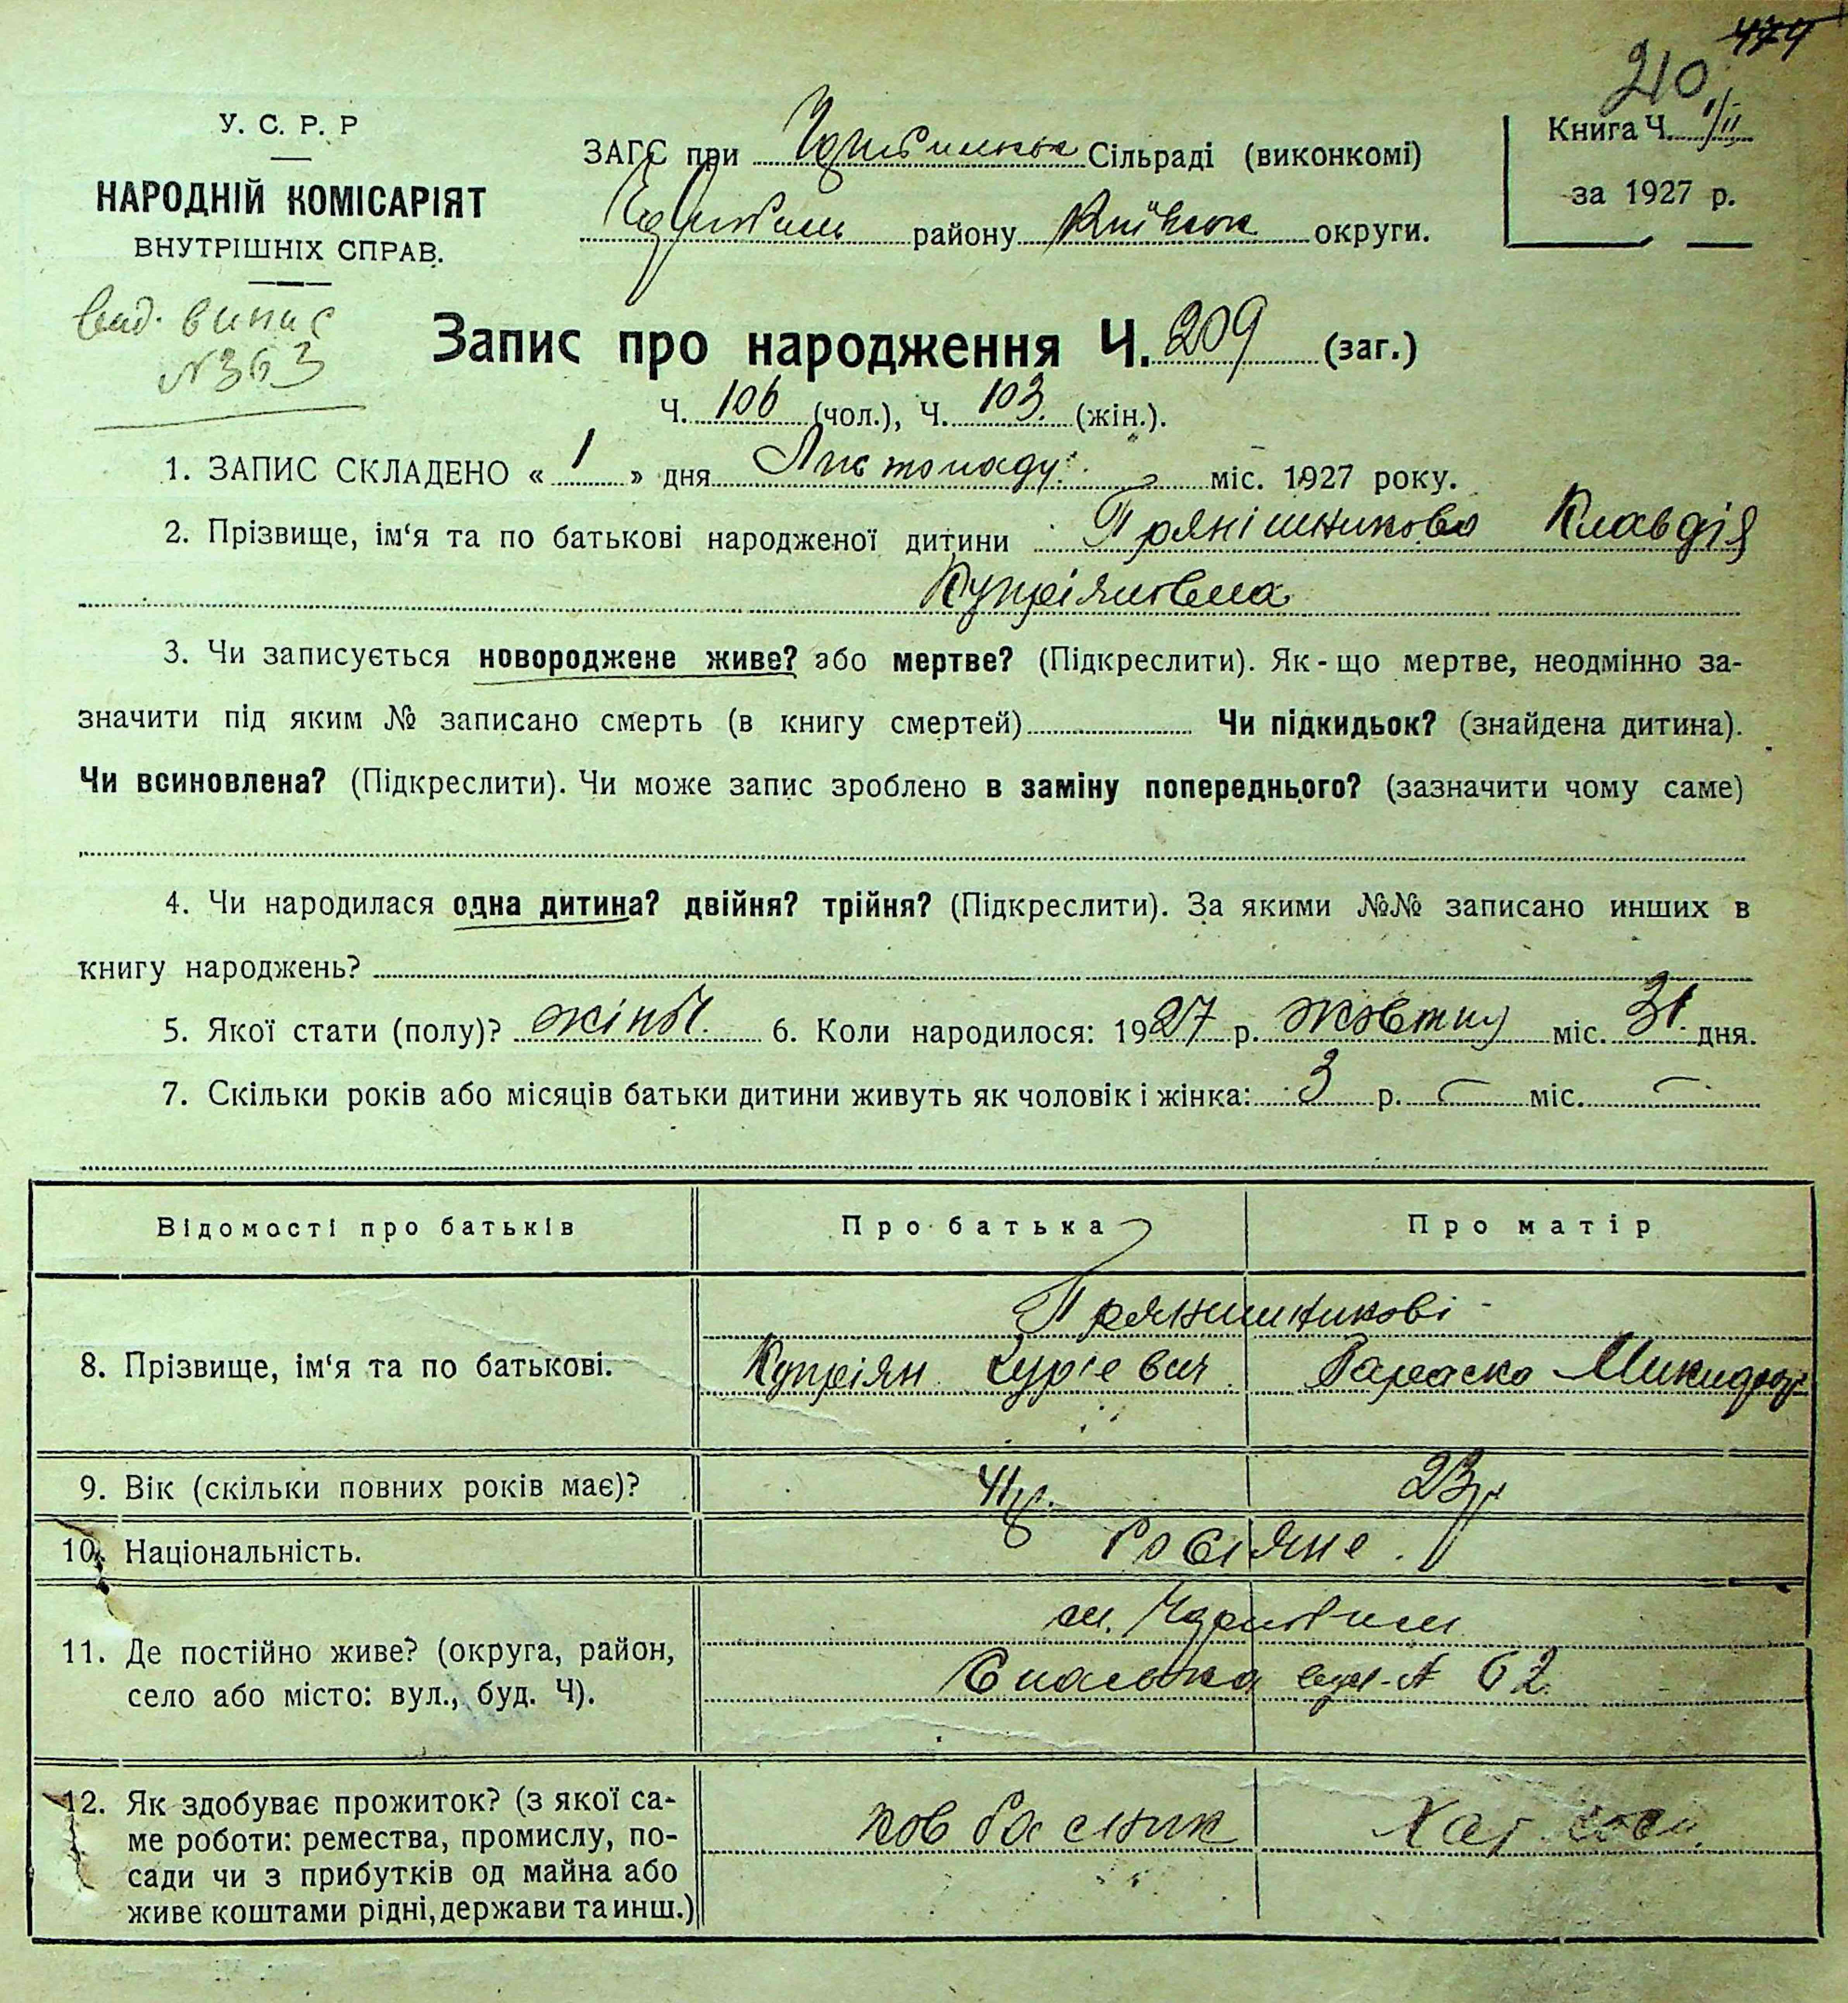 474
210
У. С. Р. Р
НАРОДНІЙ КОМІСАРІЯТ
ВНУТРІШНІХ СПРАВ.
ЗАГС при Чорнобильськ Сільраді (виконкомі)
Чорнобильс району Київськ округи.
Книга Ч. I/II
за 1927 р.
вид. випис
№363
Запис про народження Ч. 209 (заг.)
Ч. 106 (чол.), Ч. 103 (жін.).
1. ЗАПИС СКЛАДЕНО « 1 » дня Листопаду міс. 1927 року.
2. Прізвище, ім‘я та по батькові народженої дитини Прянішникова Клавдія
Купріяновна
3. Чи записується новороджене живе? або мертве? (Підкреслити). Як-що мертве, неодмінно за-
значити під яким № записано смерть (в книгу смертей) Чи підкидьок? (знайдена дитина).
Чи всиновлена? (Підкреслити). Чи може запис зроблено в заміну попереднього? (зазначити чому саме)
4. Чи народилася одна дитина? двійня? трійня? (Підкреслити). За якими №№ записано инших в
книгу народжень?
5. Якої стати (полу)? жіноч. 6. Коли народилося: 1927 р. жовтня міс. 31 дня.
7. Скільки років або місяців батьки дитини живуть як чоловік і жінка: 3 р. – міс. –
Відомості про батьків Про батька Про матір
Прянишникові
8. Прізвище, ім‘я та по батькові. Купріян Гурієвич Параска Микидор
9. Вік (скільки повних років має)? 41 р. 23 р
10. Національність. Росіяне.
м. Чорнобиль
11. Де постійно живе? (округа, район,
село або місто: вул., буд. Ч). вул. № 62
12. Як здобуває прожиток? (з якої са-
ме роботи: ремества, промислу, по-
сади чи з прибутків од майна або
живе коштами рідні, держави та инш.)
ковбасник Хат. госп.